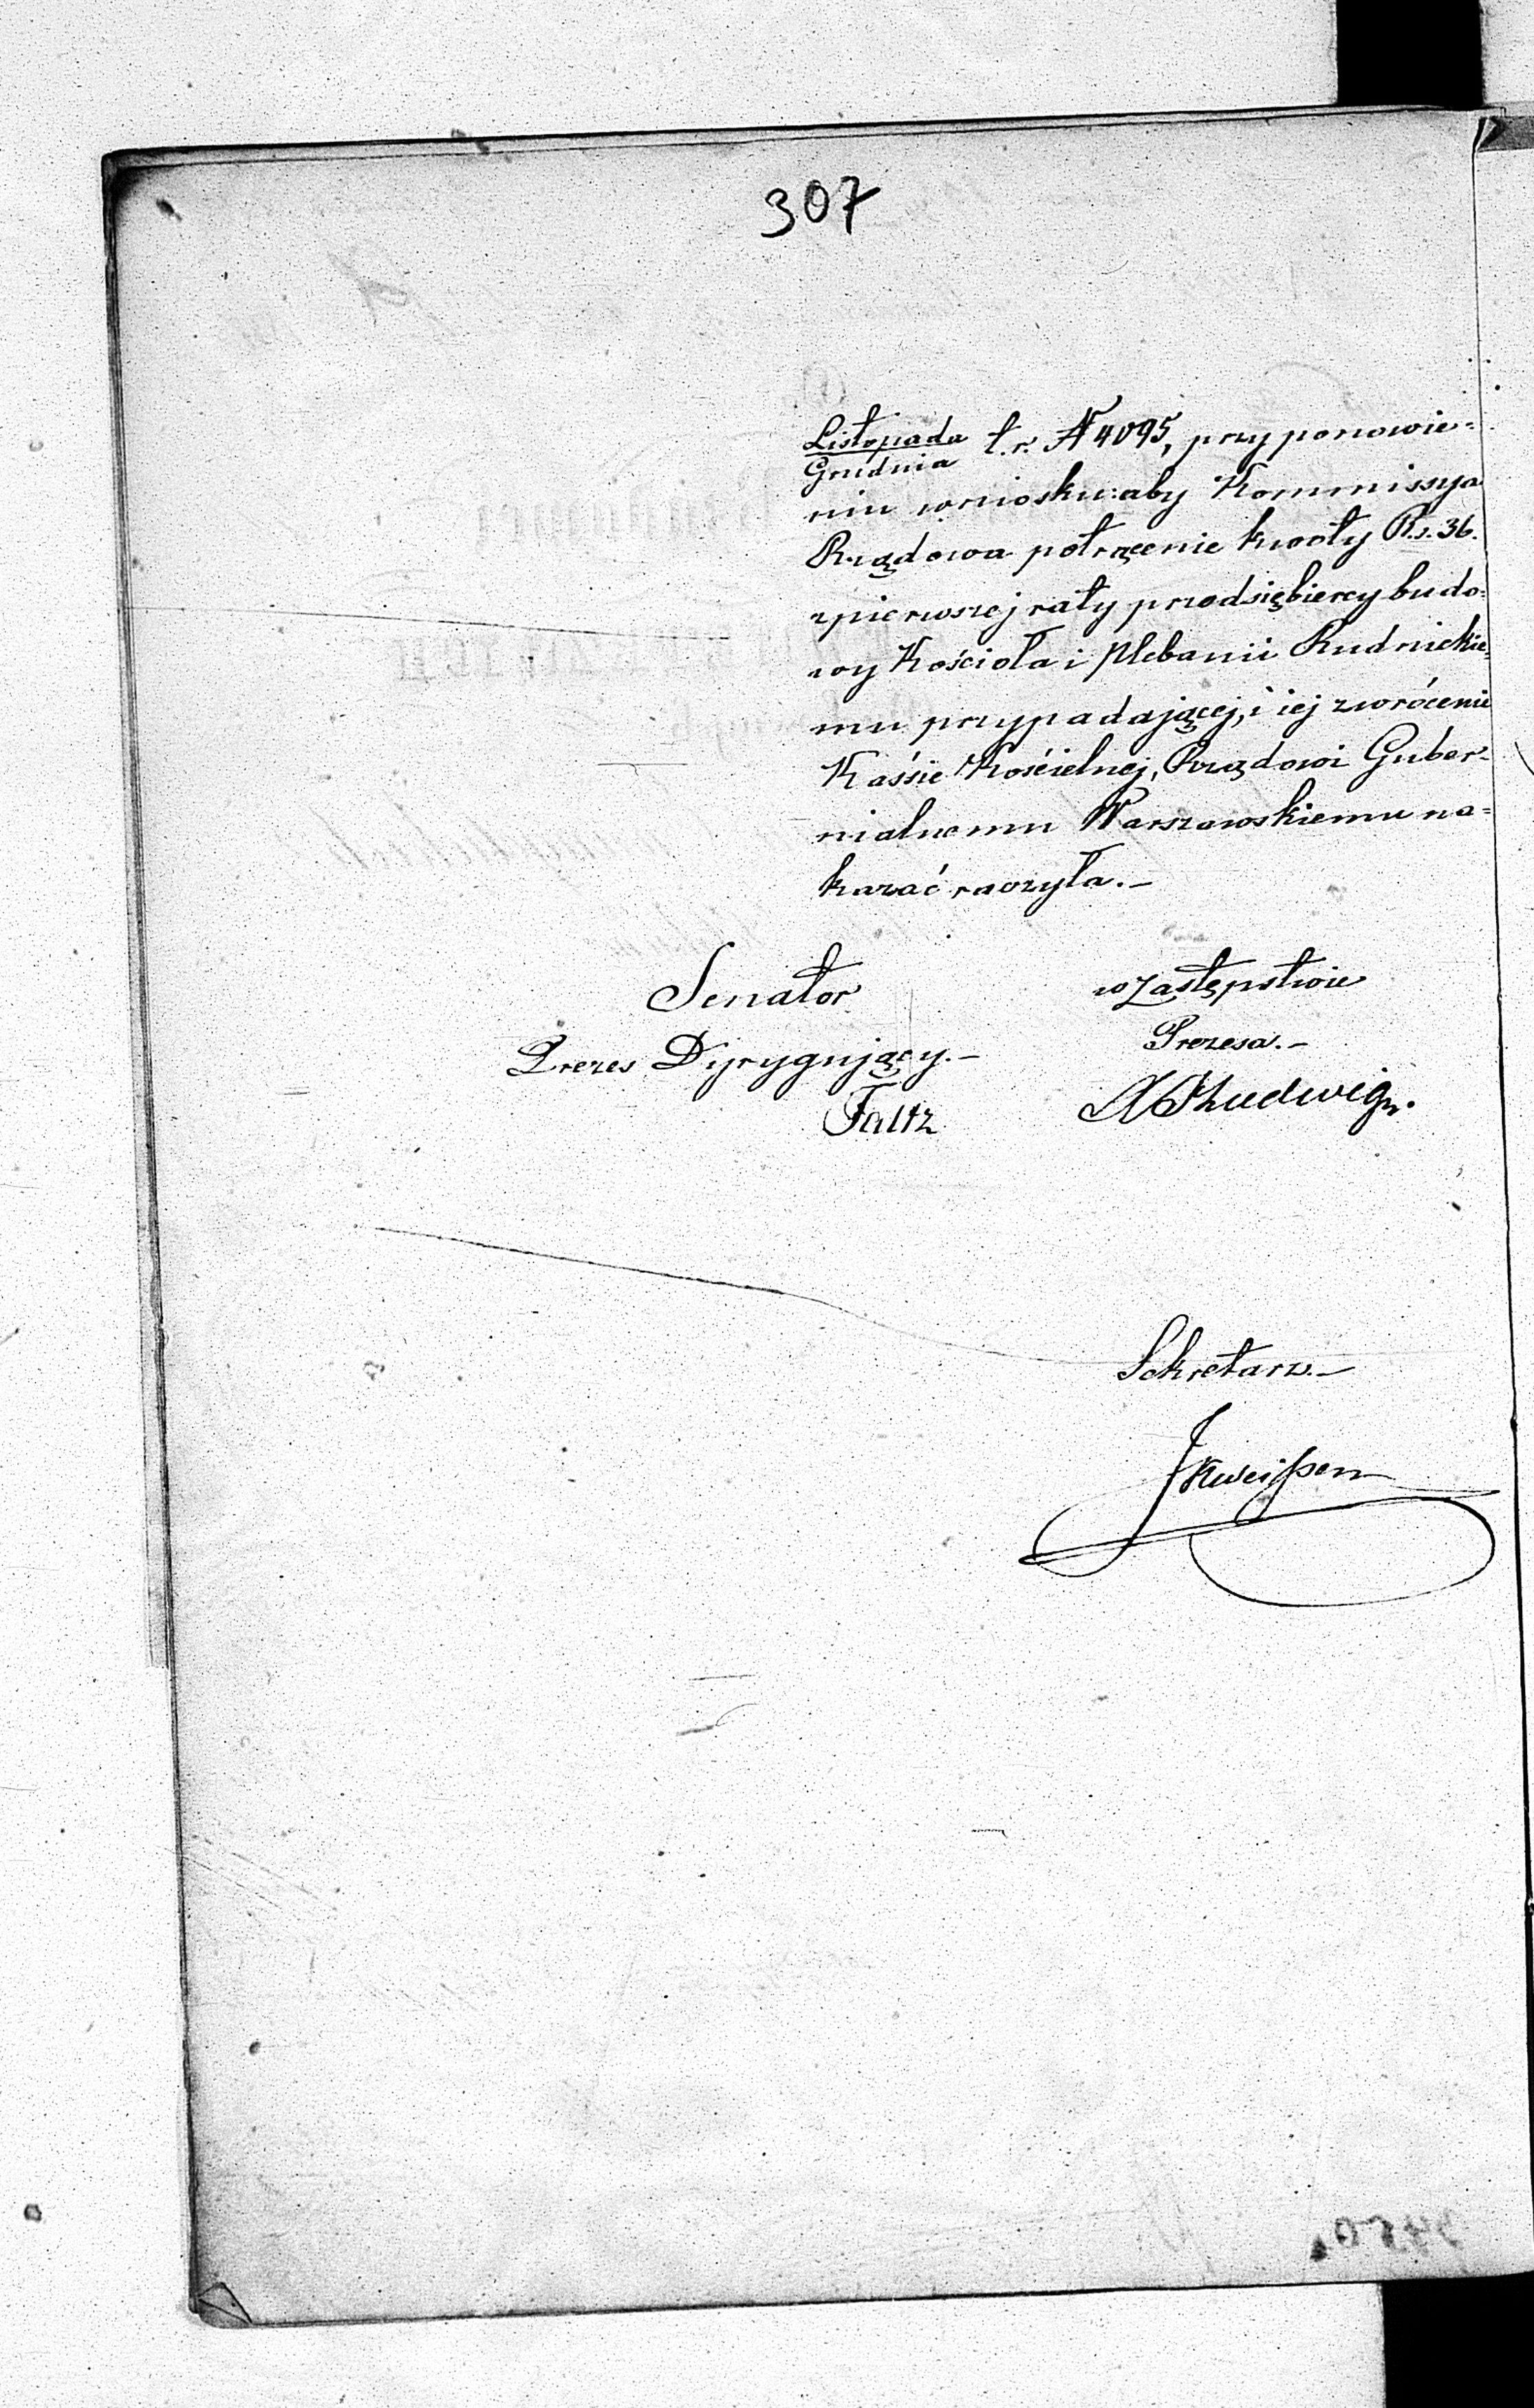 307
Listopada
Grudnia t.r. N 4095, przy ponowie=
niu wniosku: aby Kommissya
Rządowa potrącenie kwoty R.s. 36.
z pierwszej raty przedsiębiercy budo=
wy Kościoła i Plebanii Rudnickie=
mu przypadającej, i iej zwrócenie
Kassie Kościelnej, Rządowi Guber=
nialnemu Warszawskiemu na=
kazać raczyła.—
Senator
Prezes Dyrygujący.—
Faltz
w Zastępstwie
Prezesa.—
Ludwig
Sekretarz.—